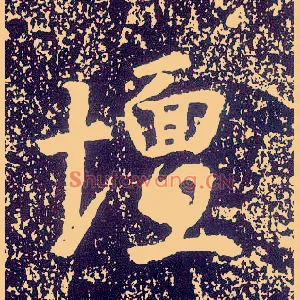 壇
Shufawang.CN